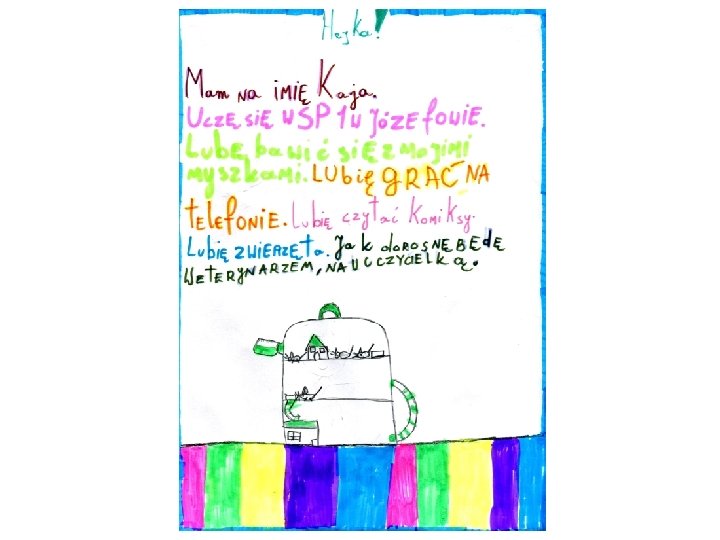 Hejka!
Mam na imię Kaja.
Uczę się w SP 1 w Józefowie.
Lubę bawić się z mojimi
myszkami. Lubię grać na
telefonie. Lubię czytać komiksy.
Lubię zwierzęta. Jak dorosnę będę
weterynarzem, nauczycielką.